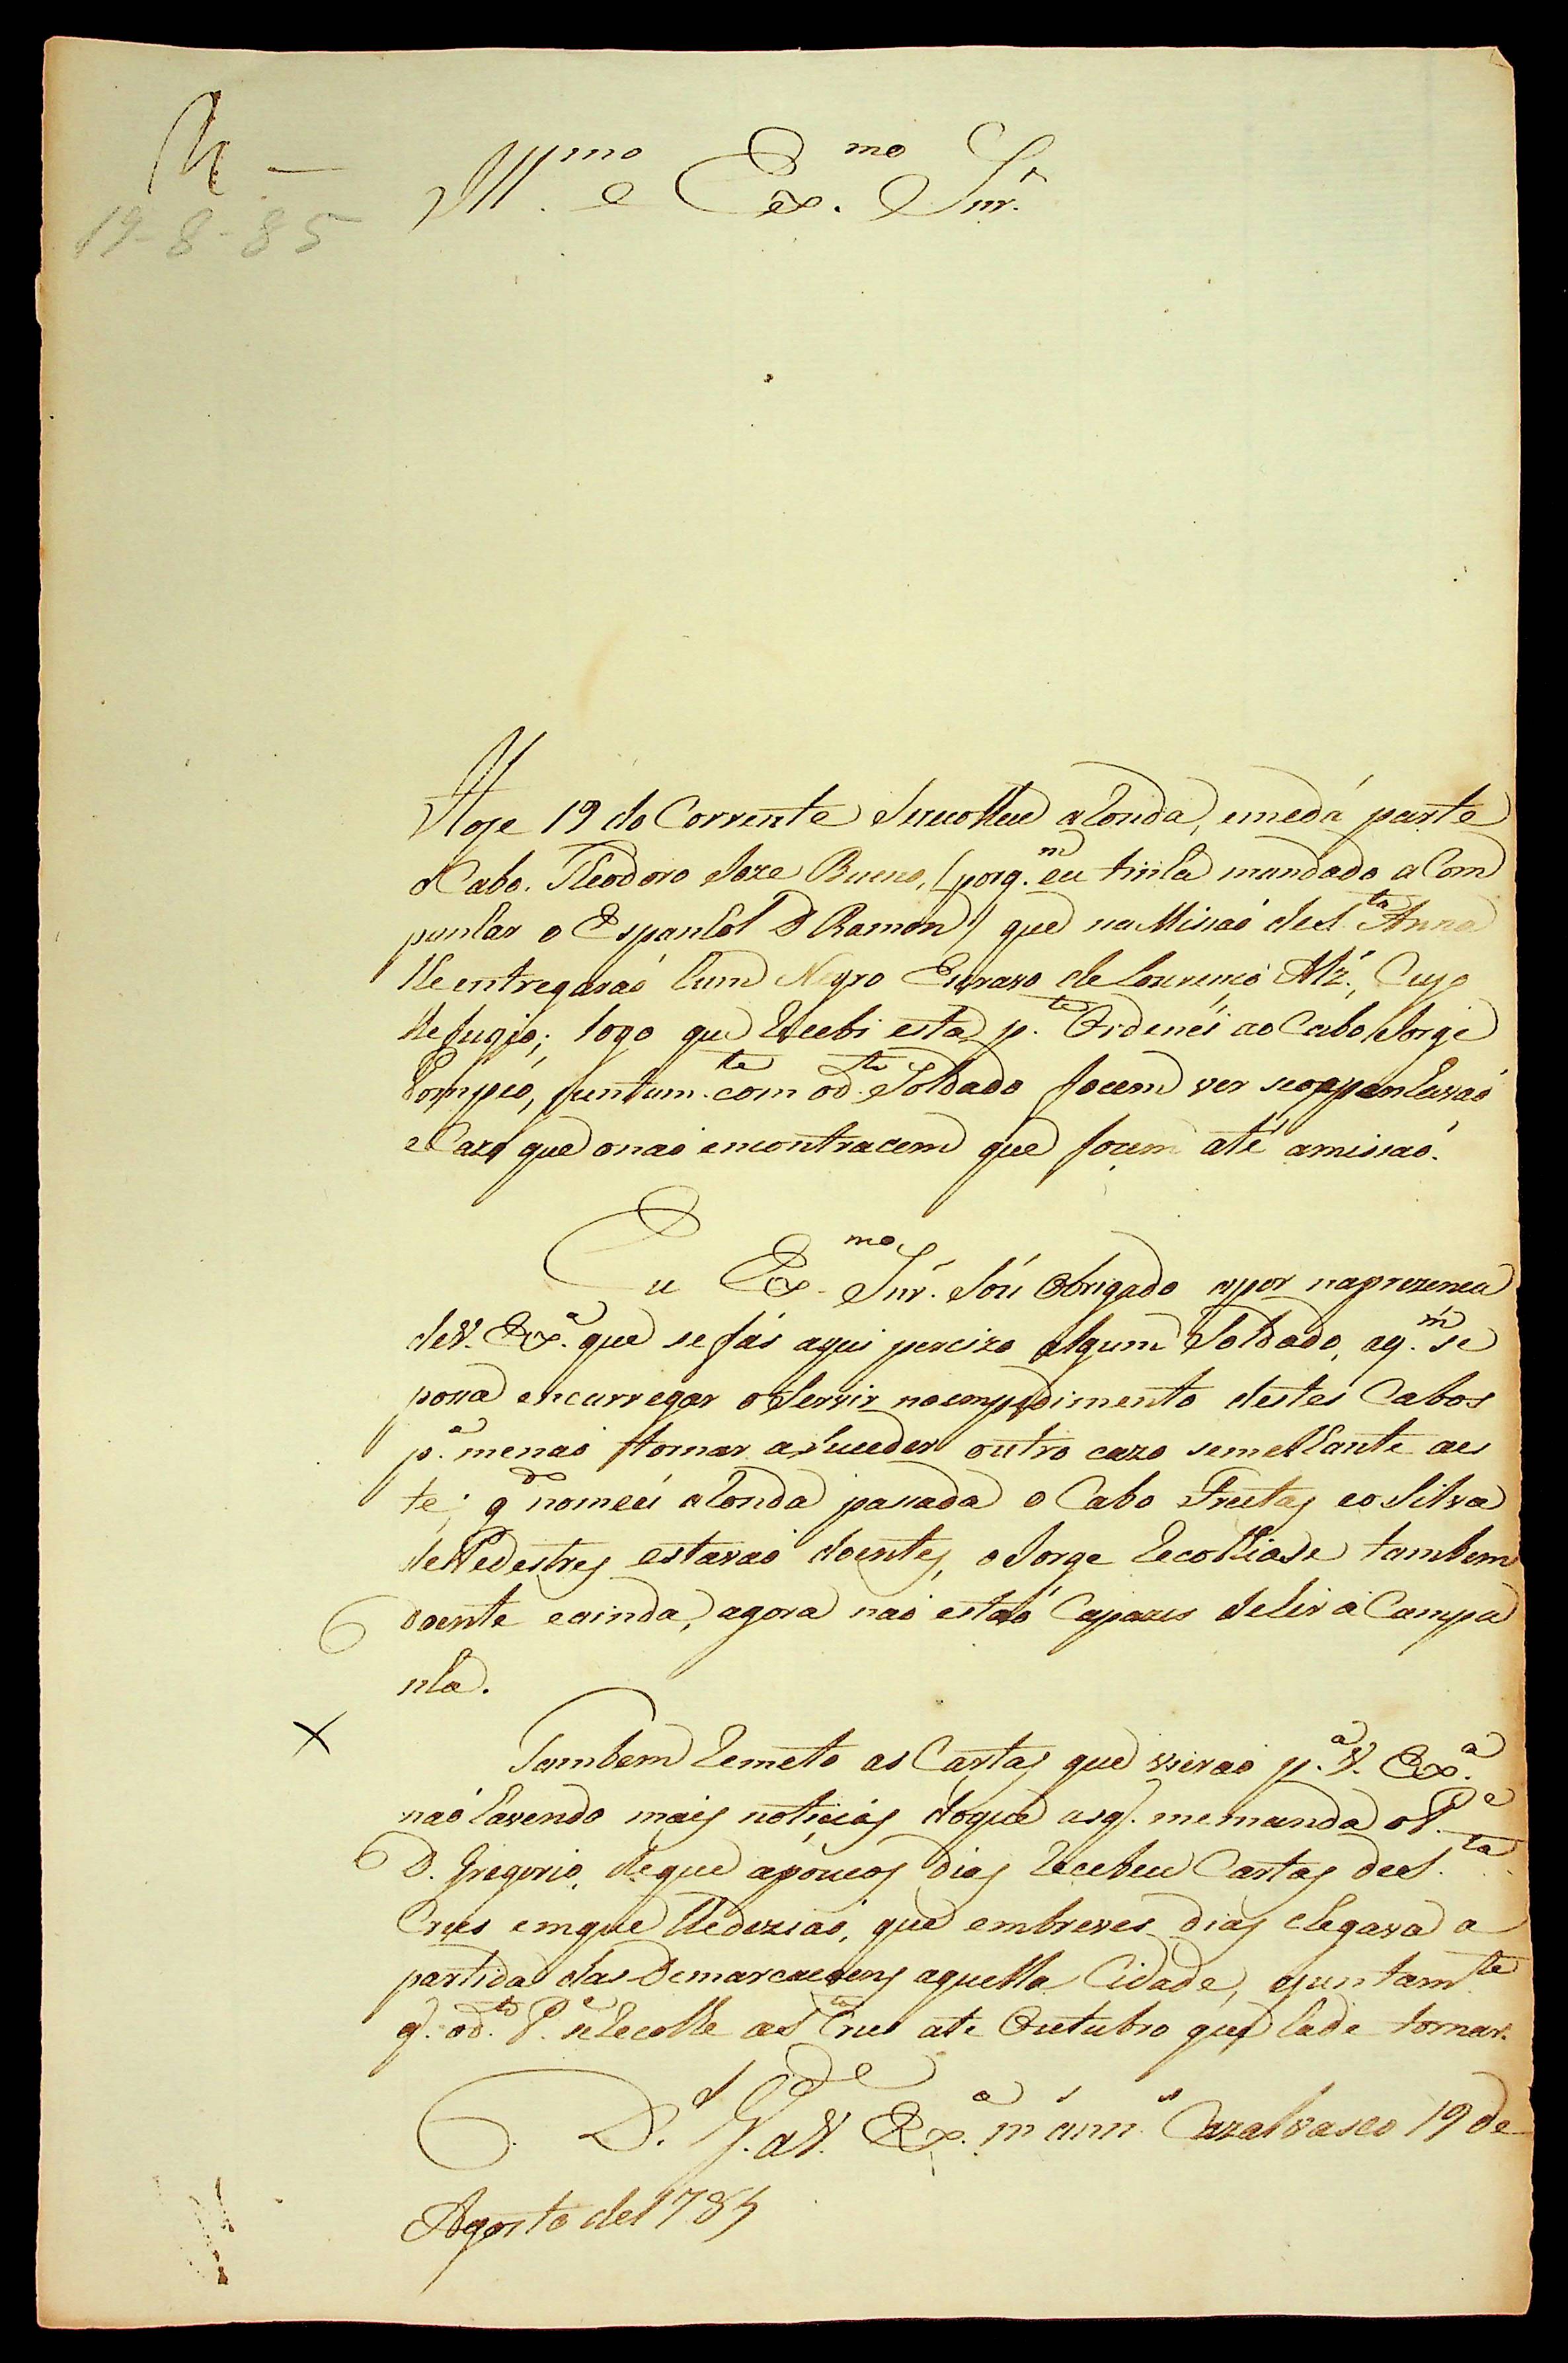 19-8-85
Ill.mo e Ex.mo Snr.
Hoje 19 do Corrente Serecolheu aRonda, emedá parte
oCabo. Theodoro Joze Bueno, (porq.m eu tinha mandado aCom
panhar o Espanhol D Ramon) que naMissaõ deS.ta Anna
lheentregaraõ hum Negro Escravo deLourenço Alz', Cujo
lhefugio; logo que Recebi esta p.te Ordeneí ao Cabo Jorge
Pompeo, juntam.te com od.to Soldado focem ver seoappanhavaõ
eCazo que onaõ encontracem que focem até amissaõ.
Eu Ex.mo Snr. Soú Obrigado apor naprezenca
deV. Ex.a que se fás aqui percizo algum Soldado, aq.m se
possa encarregar oServir noempedimento destes Cabos
p.a menaõ tornar aSuceder outro cazo semelhante aes
te; q.do nomeeí aRonda passada o Cabo Freitas eoSilva
dePedestres estavaõ doentes, oJorge RecolhiaSe tambem
doente eainda, agora naõ estaõ Capazes deHir á Campa
nha.
Tambem Remeto as Cartas que vieraõ p.a V. Ex.a
naõ havendo mais noticias doque asq. memanda oP.e
D. Gregorio, deque apoucos dias Recebeu Cartas deS.ta
Crus emque lhediziaõ, que embreves dias chegava a
partida das Demarcacoens aquella Cidade, ajuntam.te
q. od.to P.e seRecolhe aS.ta Crus ate Outubro que hade tornar.
D.s G.de aV. Ex.a m.s ann.s Cazalvasco 19 de
Agosto de1785